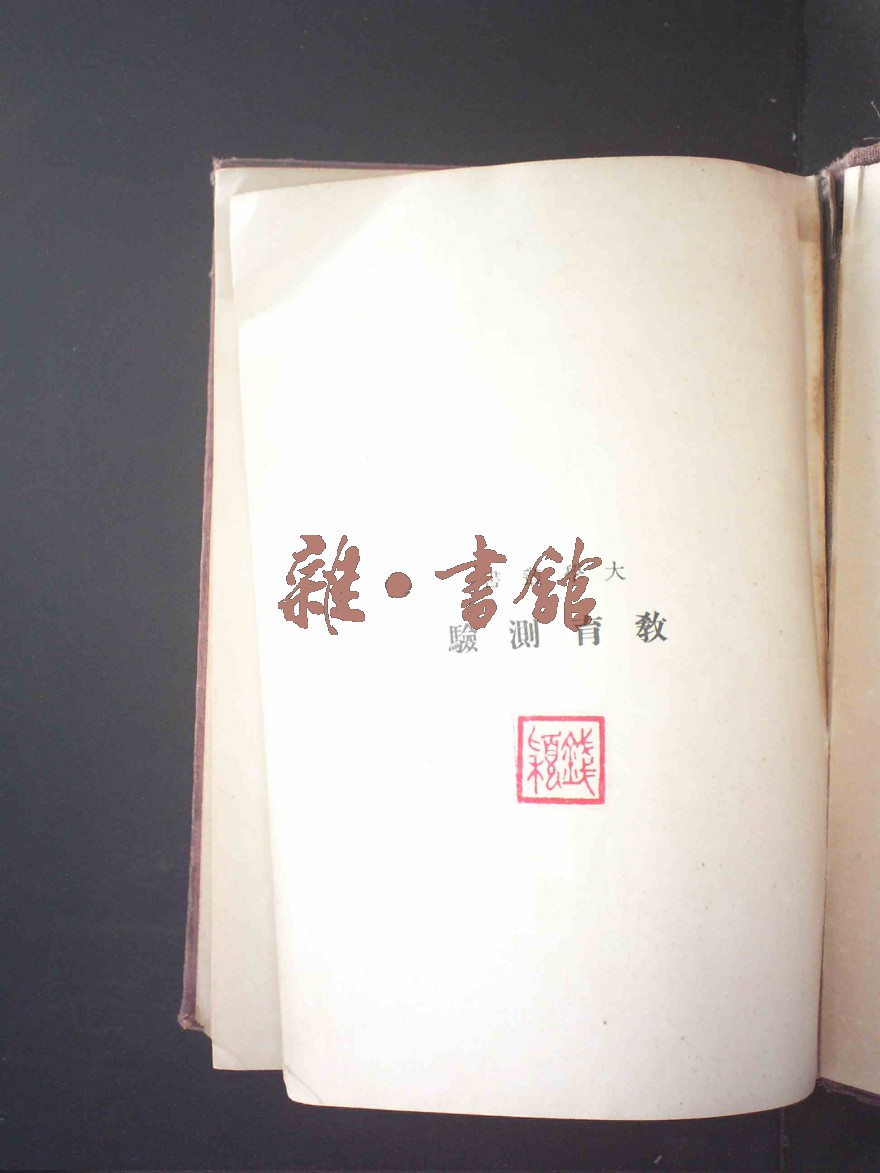 雜·書館
大學叢書
敎育測驗